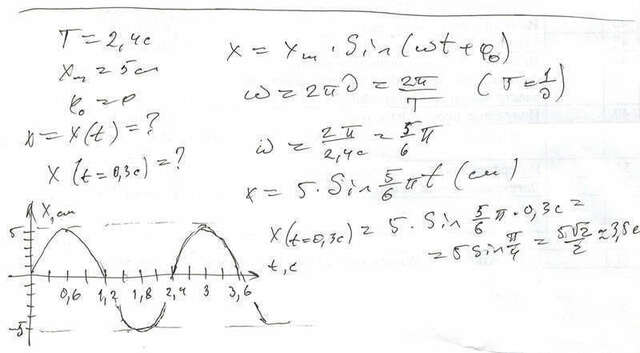 T = 2,4c
x_m = 5см
φ₀ = 0
x = x(t) = ?
x(t=0,3c) = ?
x = x_m · Sin(ωt + φ₀)
ω = 2π∂ = 2π/T (T = 1/∂)
ω = 2π/2,4c = 5/6 π
x = 5 · Sin 5/6 πt (см)
x(t=0,3c) = 5 · Sin 5/6 π · 0,3c =
= 5 Sin π/4 = 5√2/2 ≈ 3,5с
x, см
5
-5
0,6 1,2 1,8 2,4 3 3,6
t, c